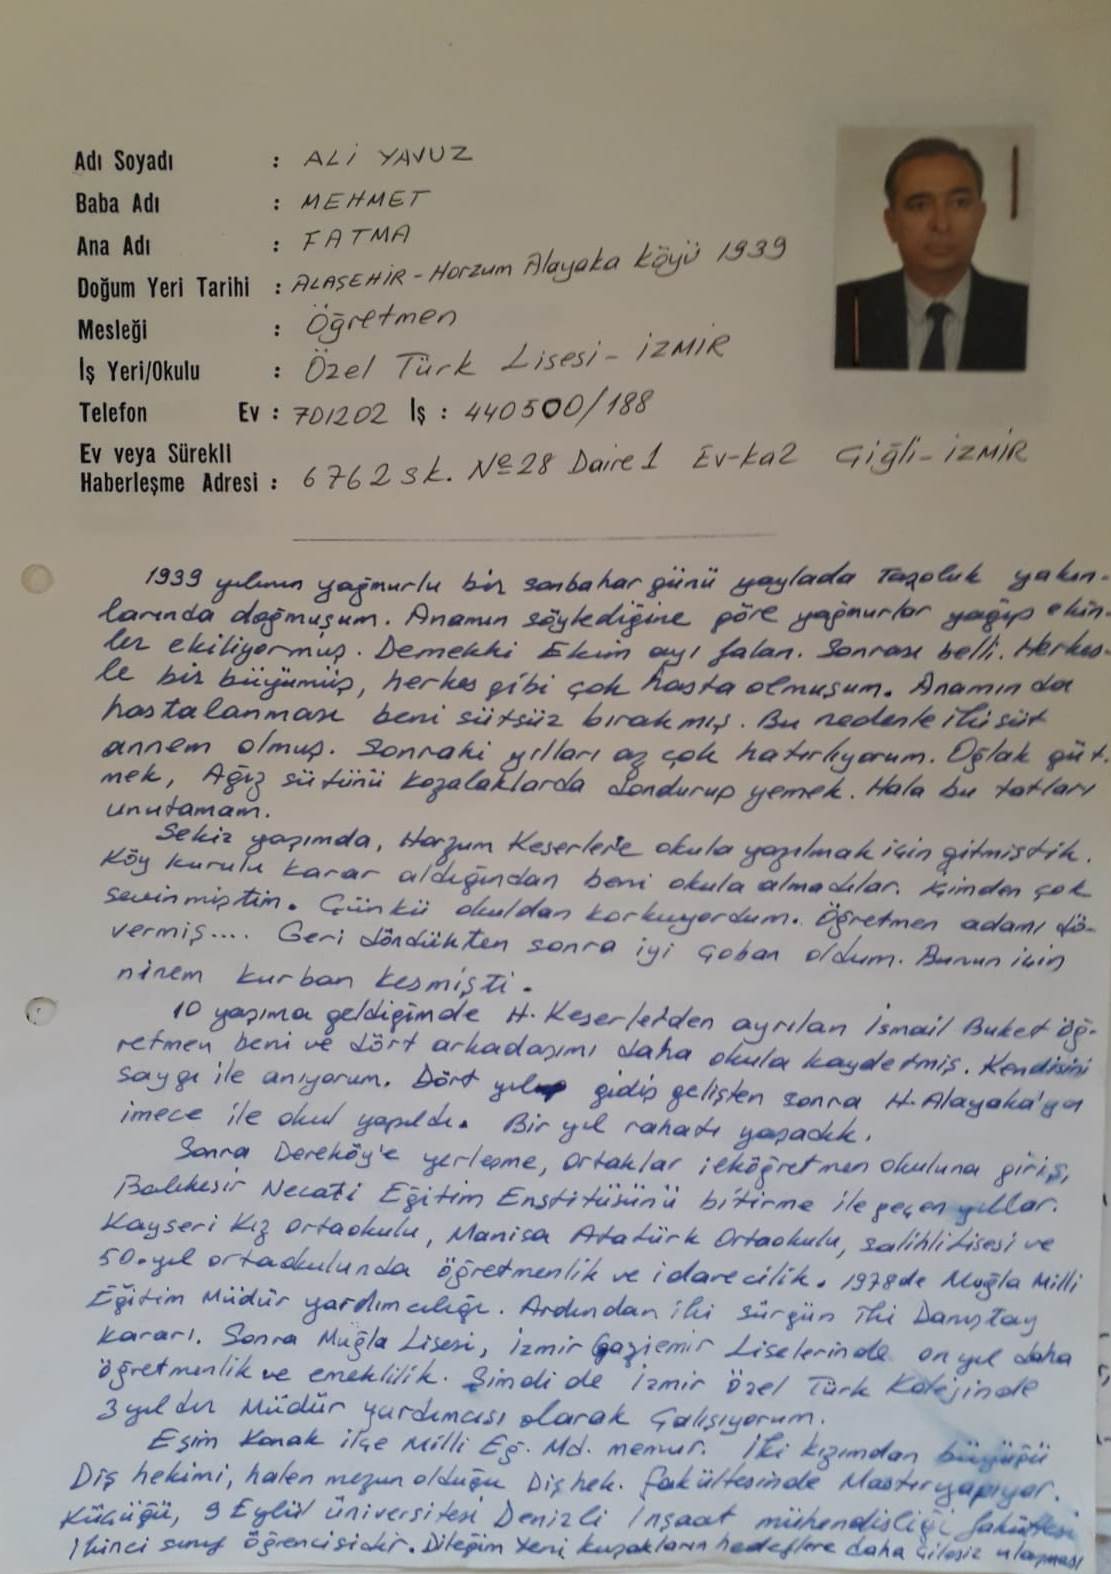 Adı Soyadı : ALİ YAVUZ
Baba Adı : MEHMET
Ana Adı : FATMA
Doğum Yeri Tarihi : ALAŞEHİR - Horzum Alayaka Köyü 1939
Mesleği : Öğretmen
İş Yeri/Okulu : Özel Türk Lisesi - İZMİR
Telefon Ev : 701202 İş : 440500/188
Ev veya Sürekli
Haberleşme Adresi : 6762 sk. No 28 Daire 1 Ev-ka2 Çiğli - İZMİR
1939 yılının yağmurlu bir sonbahar günü yaylada Tazoluk yakın-
larında doğmuşum. Anamın söylediğine göre yağmurlar yağıp ekin-
ler ekiliyormuş. Demekki Ekim ayı falan. Sonrası belli. Herkes-
le bir büyümüş, herkes gibi çok hasta olmuşum. Anamın da
hastalanması beni sütsüz bırakmış. Bu nedenle iki süt
annem olmuş. Sonraki yılları az çok hatırlıyorum. Oğlak güt-
mek, Ağız sütünü kozalaklarda dondurup yemek. Hala bu tatları
unutamam.
Sekiz yaşımda, Horzum Keserlere okula yazılmak için gitmiştik.
Köy kurulu karar aldığından beni okula almadılar. içimden çok
sevinmiştim. Çünkü okuldan korkuyordum. Öğretmen adamı dö-
vermiş.... Geri döndükten sonra iyi çoban oldum. Bunun için
ninem kurban kesmişti.
10 yaşıma geldiğimde H. Keserlerden ayrılan İsmail Buket öğ-
retmen beni ve dört arkadaşımı daha okula kaydetmiş. Kendisini
saygı ile anıyorum. Dört yıl gidiş gelişten sonra H. Alayaka'ya
imece ile okul yapıldı. Bir yıl rahatı yaşadık.
Sonra Dereköy'e yerleşme, Ortaklar ilköğretmen okuluna giriş,
Balıkesir Necati Eğitim Enstitüsünü bitirme ile geçen yıllar.
Kayseri Kız ortaokulu, Manisa Atatürk Ortaokulu, Salihli lisesi ve
50. yıl ortaokulunda öğretmenlik ve idarecilik. 1978 de Muğla Milli
Eğitim Müdür yardımcılığı. Ardından iki sürgün iki Danıştay
kararı. Sonra Muğla Lisesi, İzmir Gaziemir Liselerinde on yıl daha
öğretmenlik ve emeklilik. Şimdi de İzmir özel Türk Kolejinde
3 yıldır Müdür yardımcısı olarak çalışıyorum.
Eşim Konak ilçe Milli Eğ. Md. memur. İki kızımdan büyüğü
Diş hekimi, halen mezun olduğu Diş hek. fakültesinde Master yapıyor.
Küçüğü, 9 Eylül üniversitesi Denizli İnşaat mühendisliği fakültesi
ikinci sınıf öğrencisidir. Dileğim yeni kuşakların hedeflere daha çilesiz ulaşması